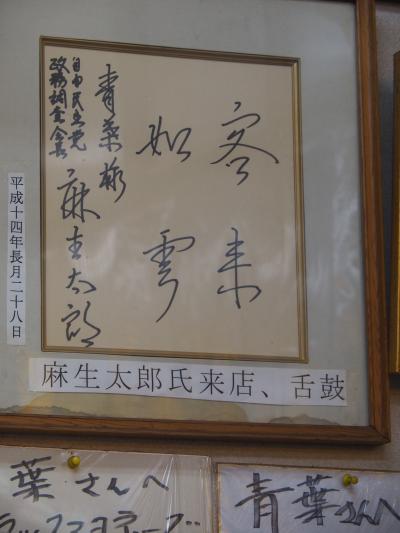 客来
如雲
青葉様
自由民主党
政務調査会長
麻生太郎
平成十四年長月二十八日
麻生太郎氏来店、舌鼓
葉さんへ
青葉さんへ